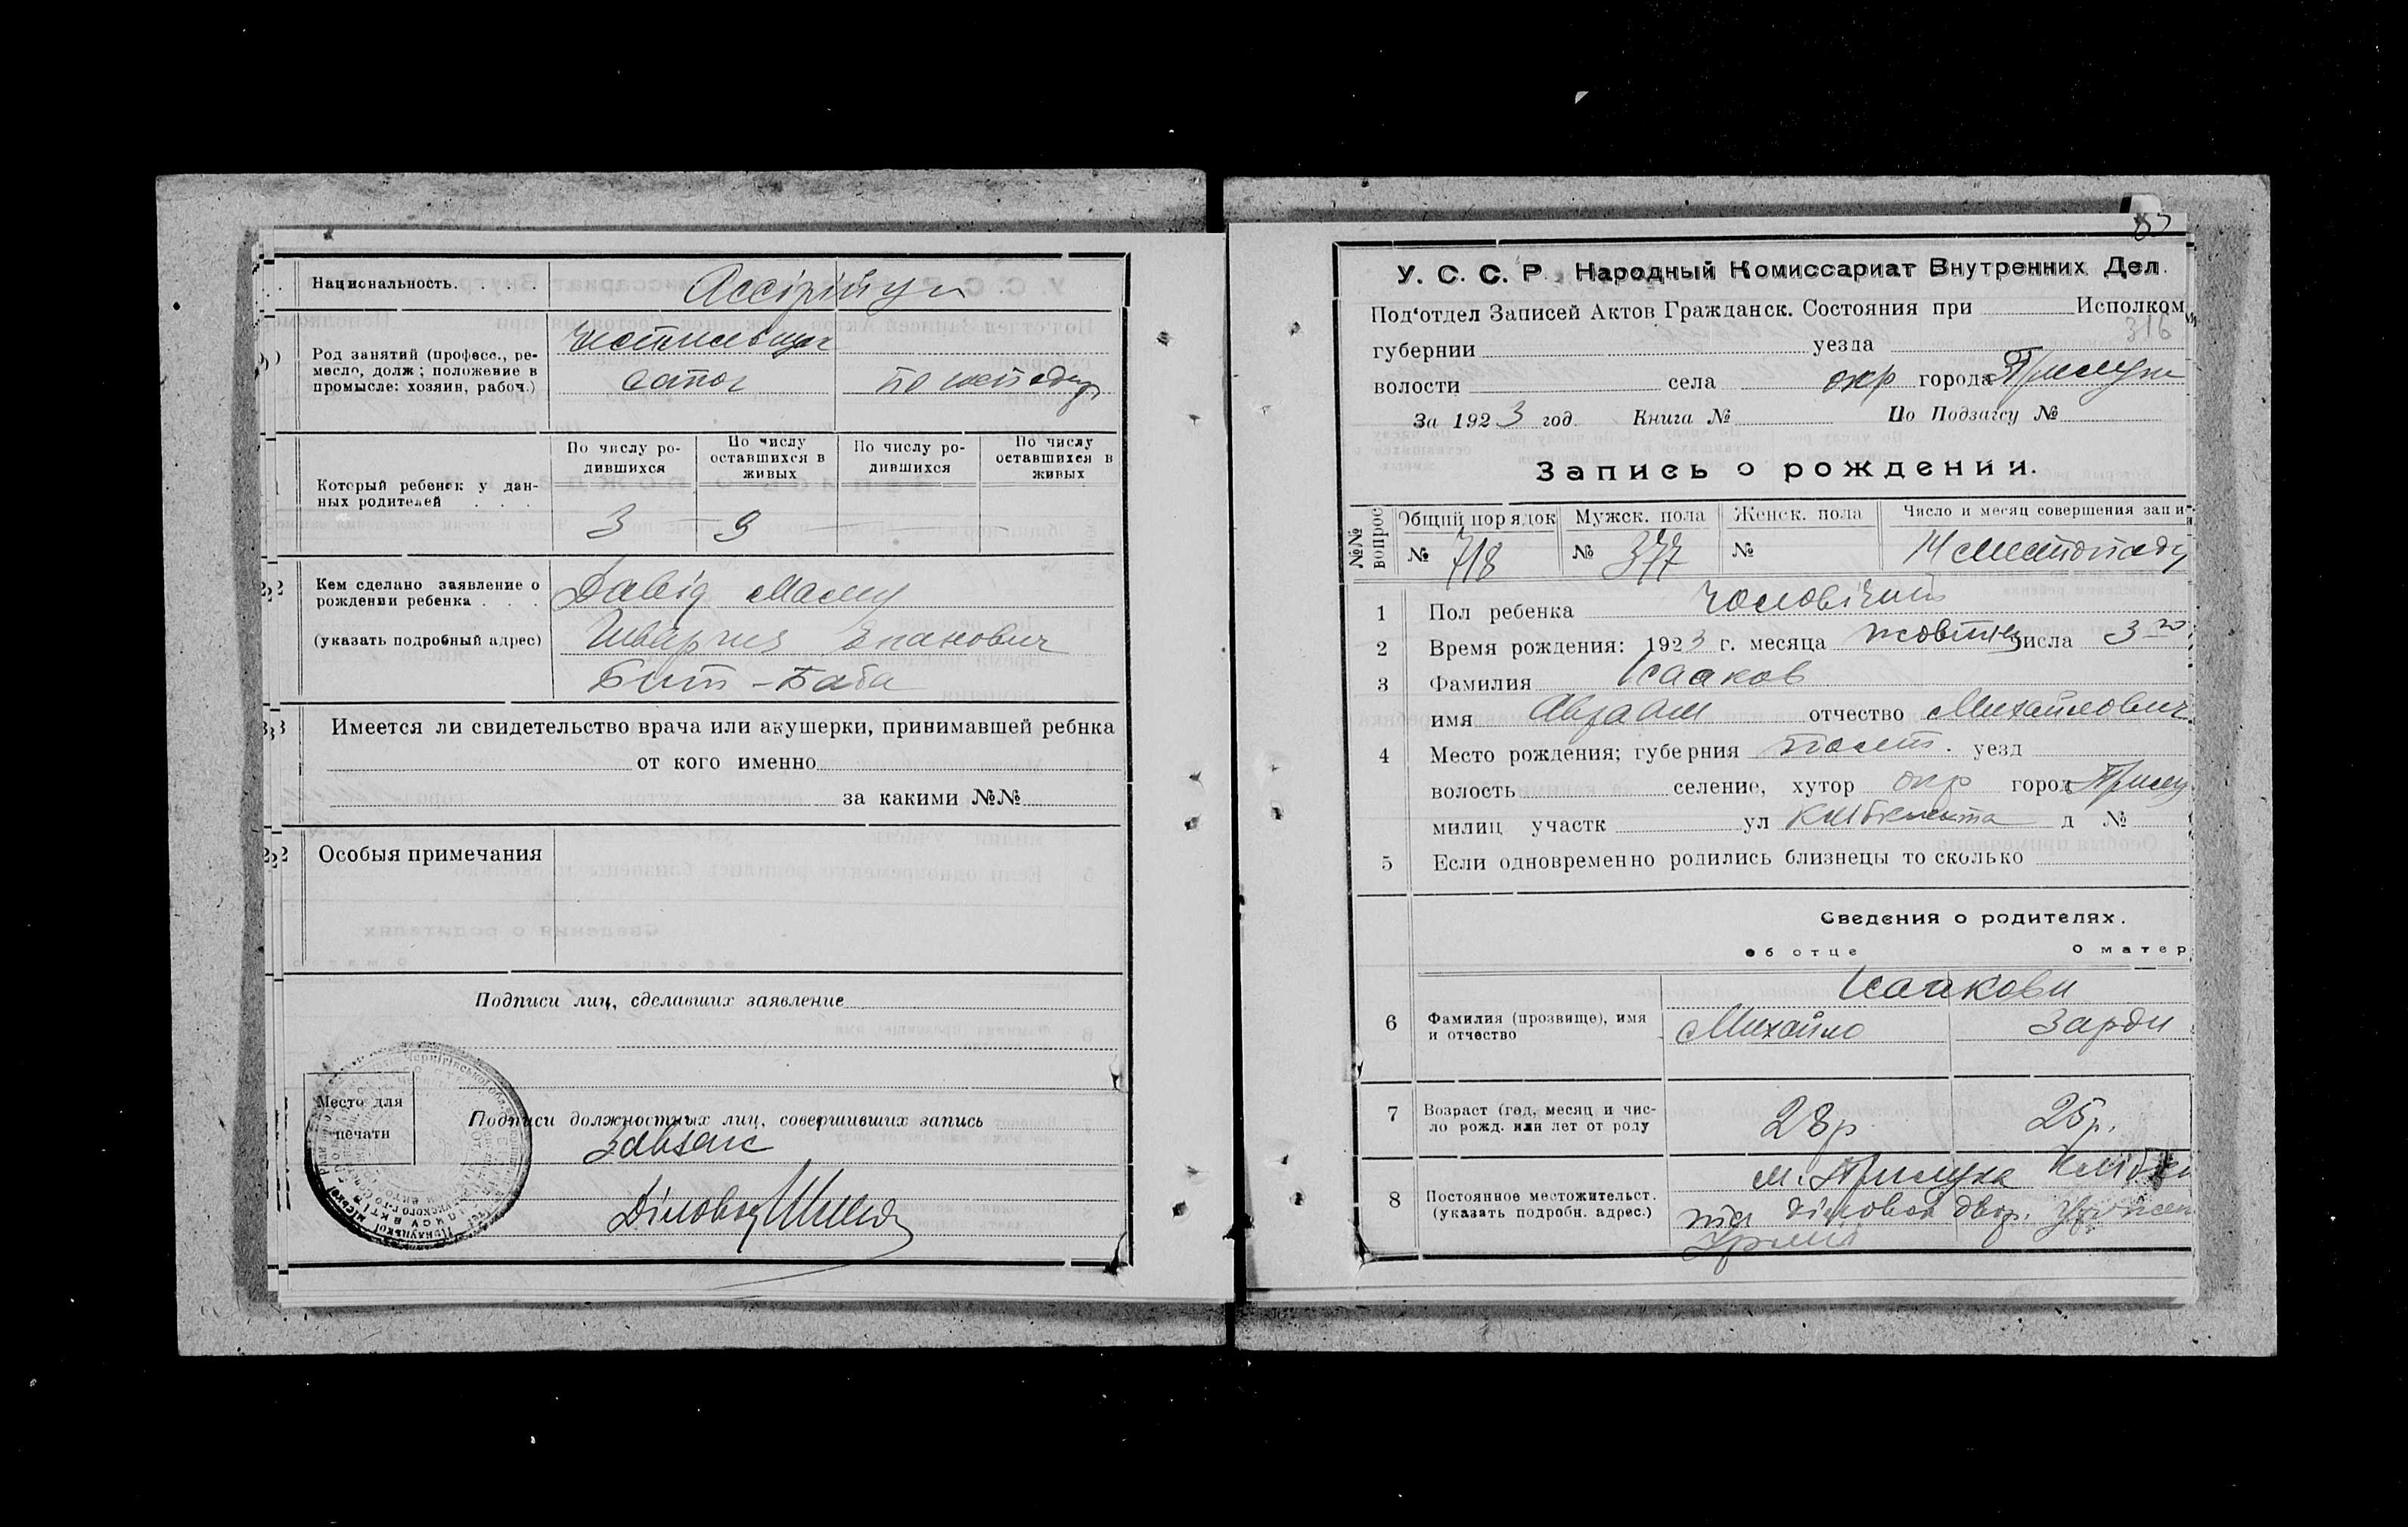 Национальность. . . . Ассірійци
Род занятий (професс., ре-
месло, долж; положение в
промысле: хозяин, рабоч.)
Чистильщик
сапог
Который ребенок у дан-
ных родителей . . .
По числу ро-
дившихся
По числу
оставшихся в
живых
По числу ро-
дившихся
По числу
оставшихся в
живых
3 3
Кем сделано заявление о
рождении ребенка . . .
(указать подробный адрес)
Давід
Бит-Баба
Имеется ли свидетельство врача или акушерки, принимавшей ребнка
от кого именно
за какими №№
Особыя примечания
Подписи лиц, сделавших заявление
Место для
печати
Подписи должностных лиц, совершивших запись
Завзагс
Діловод
У. С. С. Р. Народный Комиссариат Внутренних Дел.
Под'отдел Записей Актов Гражданск. Состояния при Исполком
316
губернии уезда
волости села окр города Прилуки
За 1923 год. Книга № По Подзагсу №
Запись о рождении.
№№ вопрос
Общий порядок Мужск. пола Женск. пола Число и месяц совершения запи
№ 718 № 377 № 14 листопаду
1 Пол ребенка Чоловічий
2 Время рождения: 1923 г. месяца жовтня числа 3го
3 Фамилия Исааков
имя Авраам отчество Михайлович
4 Место рождения; губерния полт. уезд
волость селение, хутор окр город Прилуки
милиц участк ул д №
5 Если одновременно родились близнецы то сколько
Сведения о родителях.
об отце О матер
Исаакови
6 Фамилия (прозвище), имя
и отчество
Михайло Зарди
7 Возраст (год, месяц и чис-
ло рожд. или лет от роду
28р 25р.
8 Постоянное местожительст.
(указать подробн. адрес.)
м. Прилука